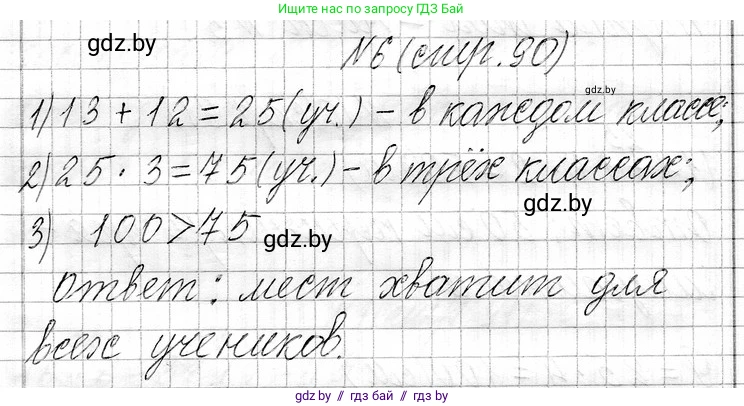 Ищите нас по запросу ГДЗ Бай
gdz.by
№6 (стр. 90)
gdz.by
1) 13 + 12 = 25 (уч.) - в каждом классе;
2) 25 · 3 = 75 (уч.) - в трёх классах;
gdz.by
3) 100 > 75
gdz.by
Ответ: мест хватит для
всех учеников.
gdz.by // гдз.бай // gdz.by